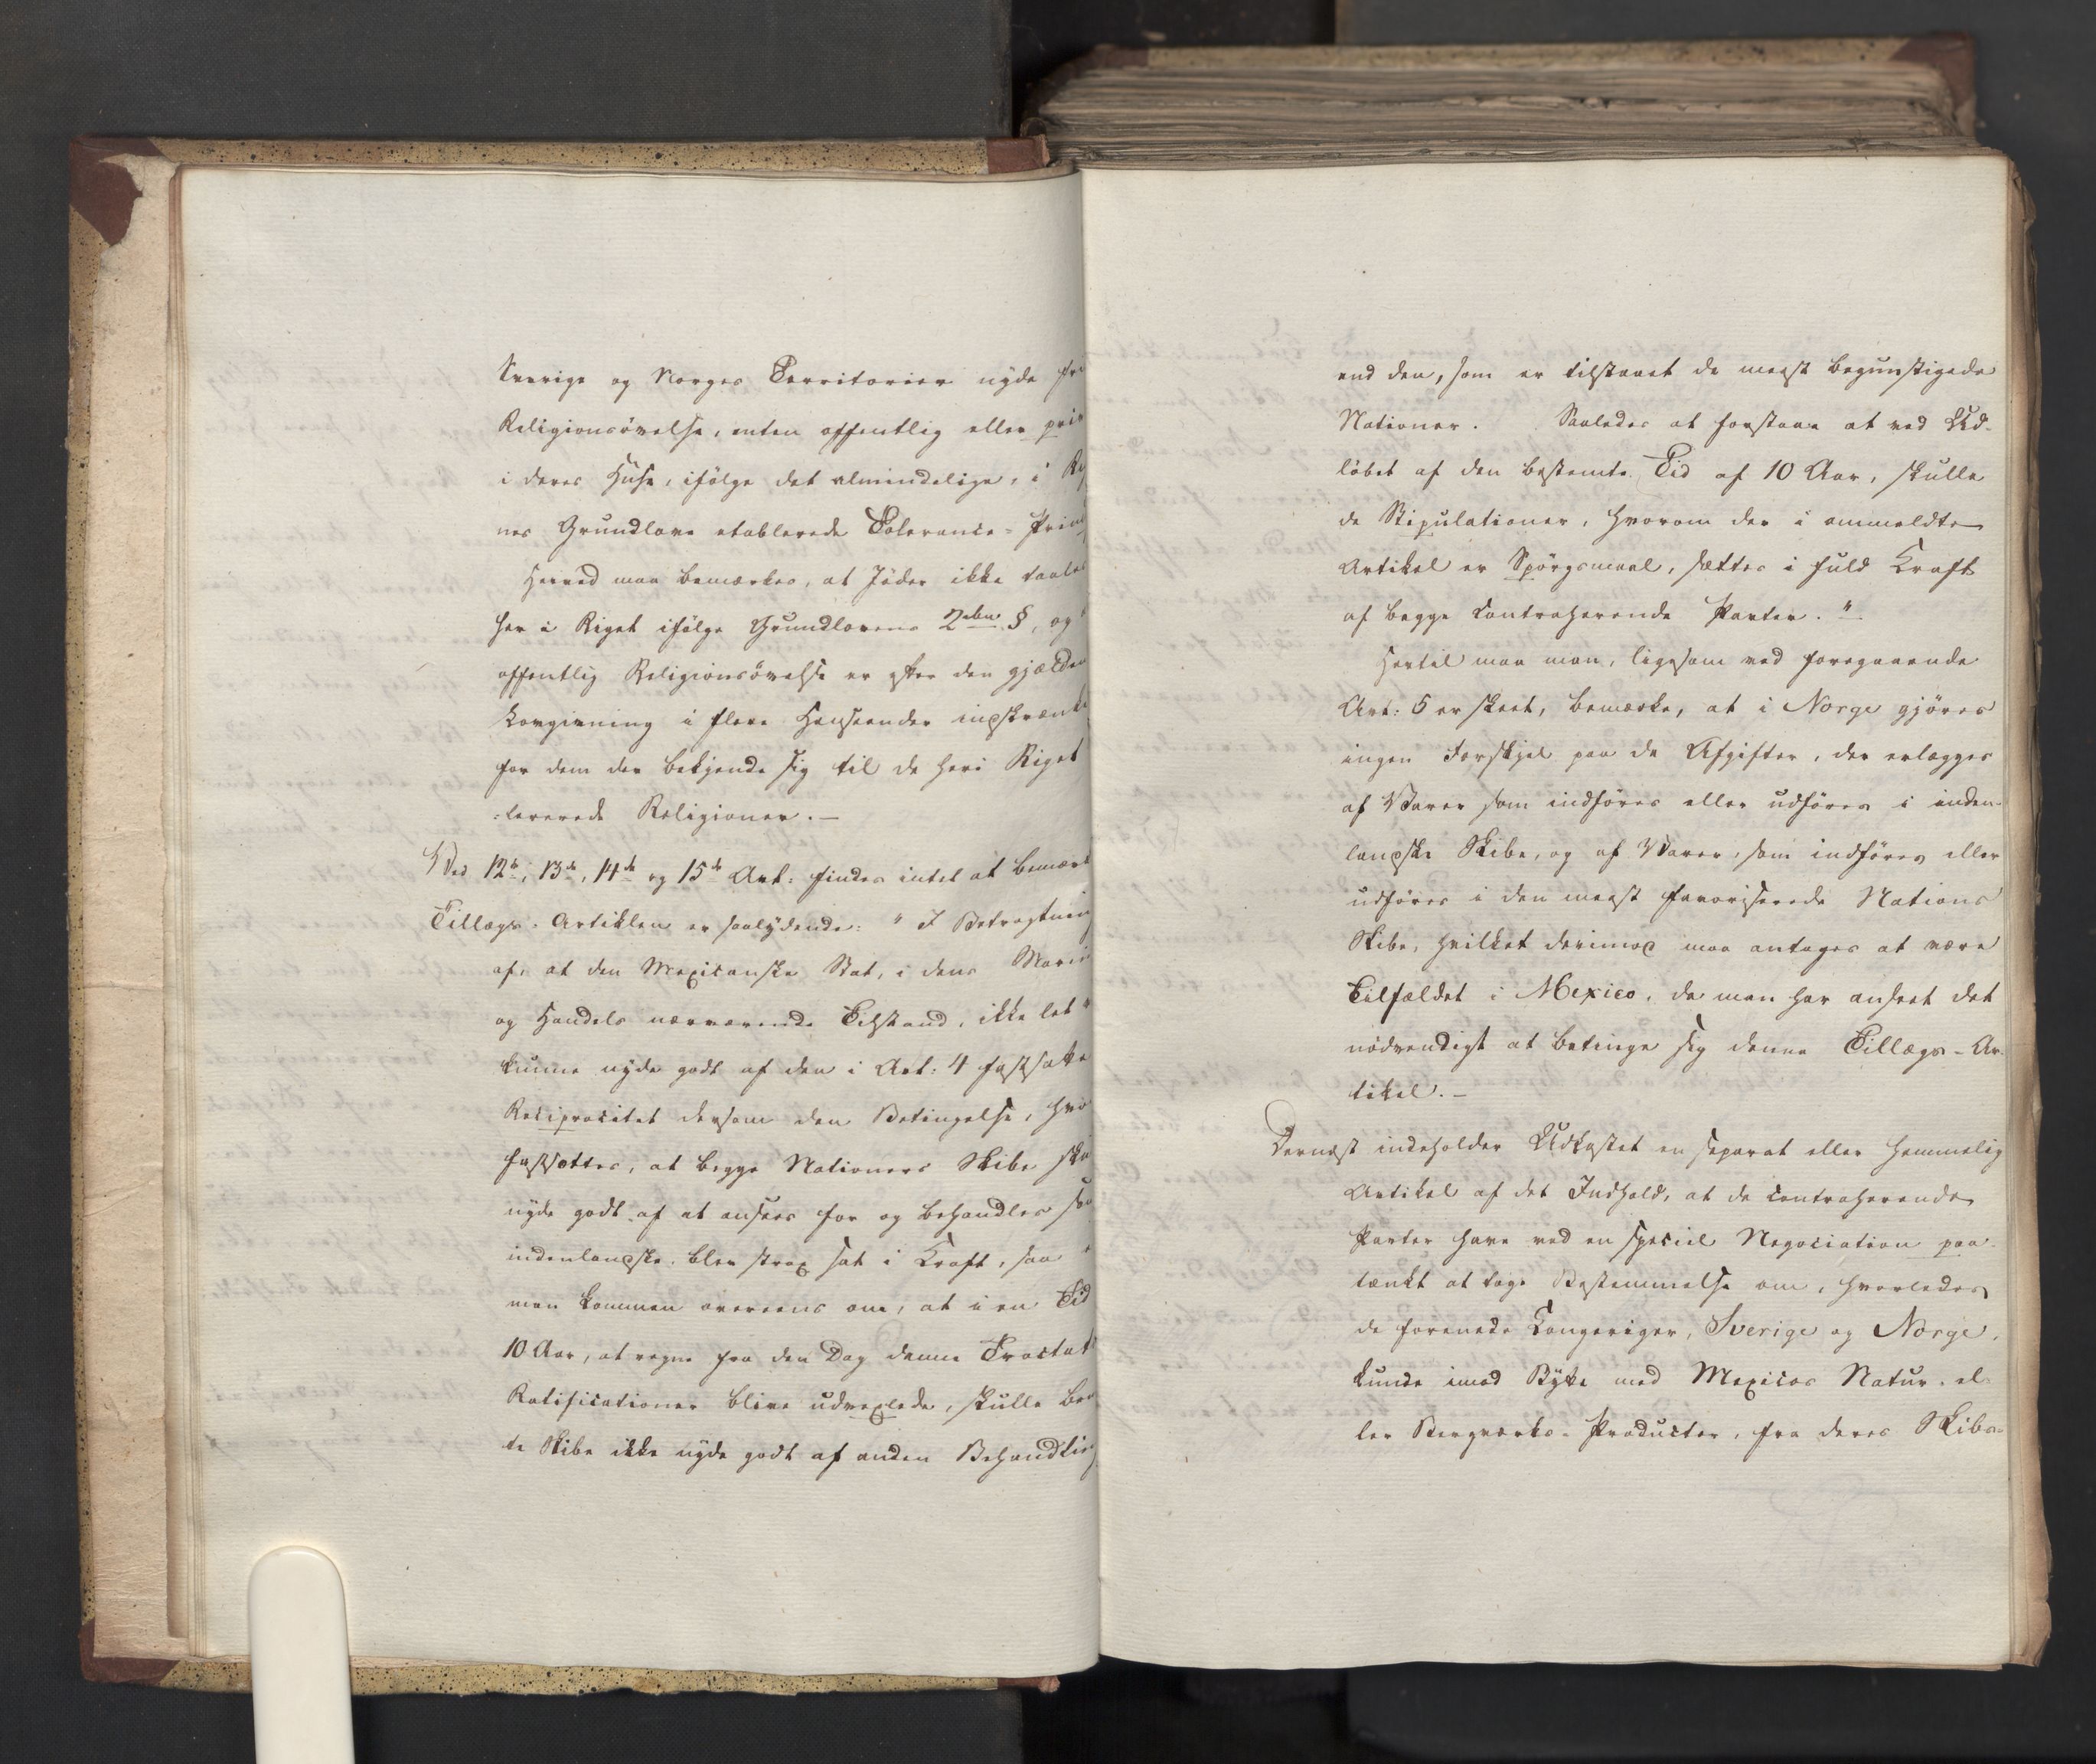 Sverige og Norges Territorier nyde fri
Religionsövelse, enten offentlig eller priv
i deres Huse, ifölge det almindelige, i Rig
nes Grundlove etablerede Tolerance-Princ
Herved maa bemærkes, at Jöder ikke taales
her i Riget ifölge Grundlovens 2den §, og
offentlig Religionsövelse er efter den gjælden
Lovgivning i flere Henseender indskrænket
for dem der bekjende sig til de heri Riget
=lererede Religioner.—
Ved 12te, 13de, 14de og 15de Art: findes intet at bemærk
Tillægs-Artiklen er saalydende: "I Betragtning
af, at den Mexicanske Stat, i dens Marin
og Handels nærværende Tilstand, ikke let
kunne nyde godt af den i Art: 4 fastsatte
Reciprocitet dersom den Betingelse, hvo
fastsættes, at begge Nationers Skibe ska
nyde godt af at ansees for og behandles so
indenlandske, blev strax sat i Kraft, saa
man kommen overeens om, at i en Tid
10 Aar, at regne fra den Dag denne Tractats
Ratificationer blive udvexlede, skulle be
te Skibe ikke nyde godt af anden Behandling
end den, som er tilstaaet de meest begunstigede
Nationer. Saaledes at forstaae at ved Ud-
löbet af den bestemte Tid af 10 Aar, skulle
de Stipulationer, hvorom der i ommeldte
Artikel er Spörgsmaal, sættes i fuld Kraft
af begge Contraherende Parter."
Hertil maa man, ligesom ved foregaaende
Art: 5 er skeet, bemærke, at i Norge gjöres
ingen Forskjel paa de Afgifter, der erlægges
af Varer som indföres eller udföres i inden-
landske Skibe, og af Varer, som indföres eller
udföres i den meest favoriserede Nations
Skibe, hvilket derimod maa antages at være
Tilfældet i Mexico, da man har anseet det
nödvendigt at betinge sig denne Tillægs-Ar-
tikel.—
Dernæst indeholder Udkastet en separat eller hemmelig
Artikel af det Indhold, at de contraherende
Parter have ved en speciel Negociation paa-
tænkt at tage Bestemmelse om, hvorledes
de forenede Kongeriger, Sverige og Norge,
kunde imod Bytte med Mexicos Natur- el-
ler Bergværks-Producter, fra deres Skibs-